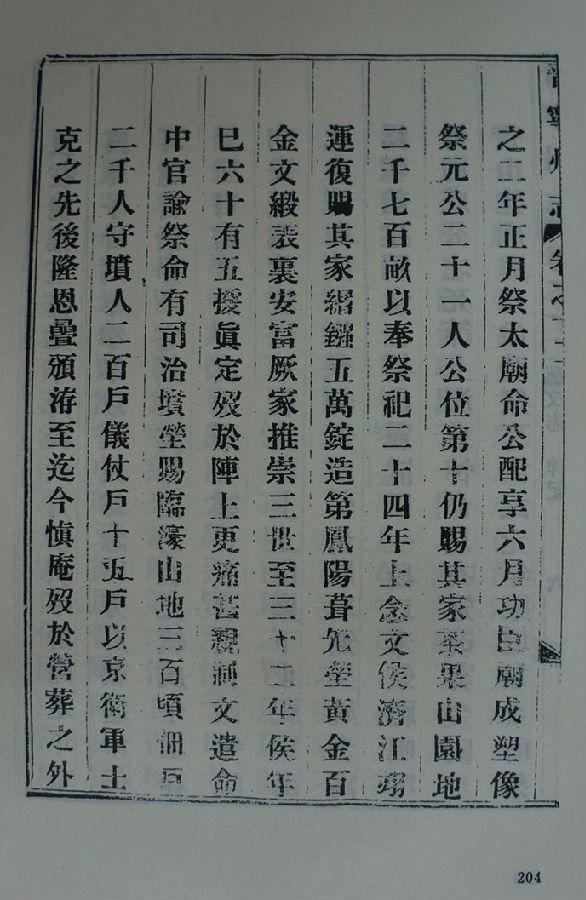 晋寧州志 卷之十二
之二年正月祭太廟命公配享六月功臣廟成塑像
祭元公二十一人公位第十仍賜其家菜果山園地
二千七百畝以奉祭祀二十四年上念文侯濟江翊
運復賜其家緡鏹五萬錠造第鳳陽葺先塋黃金百
金文緞表裏安富厥家推崇三世至三十二年侯年
已六十有五援眞定歿於陣上更痛甚親制文遣命
中官諭祭命有司治墳塋賜臨濠山地三百頃佃戶
二千人守墳人二百戶儀仗戶十五戶以京衛軍士
克之先後隆恩疊頒洊至迄今愼庵歿於營葬之外
204